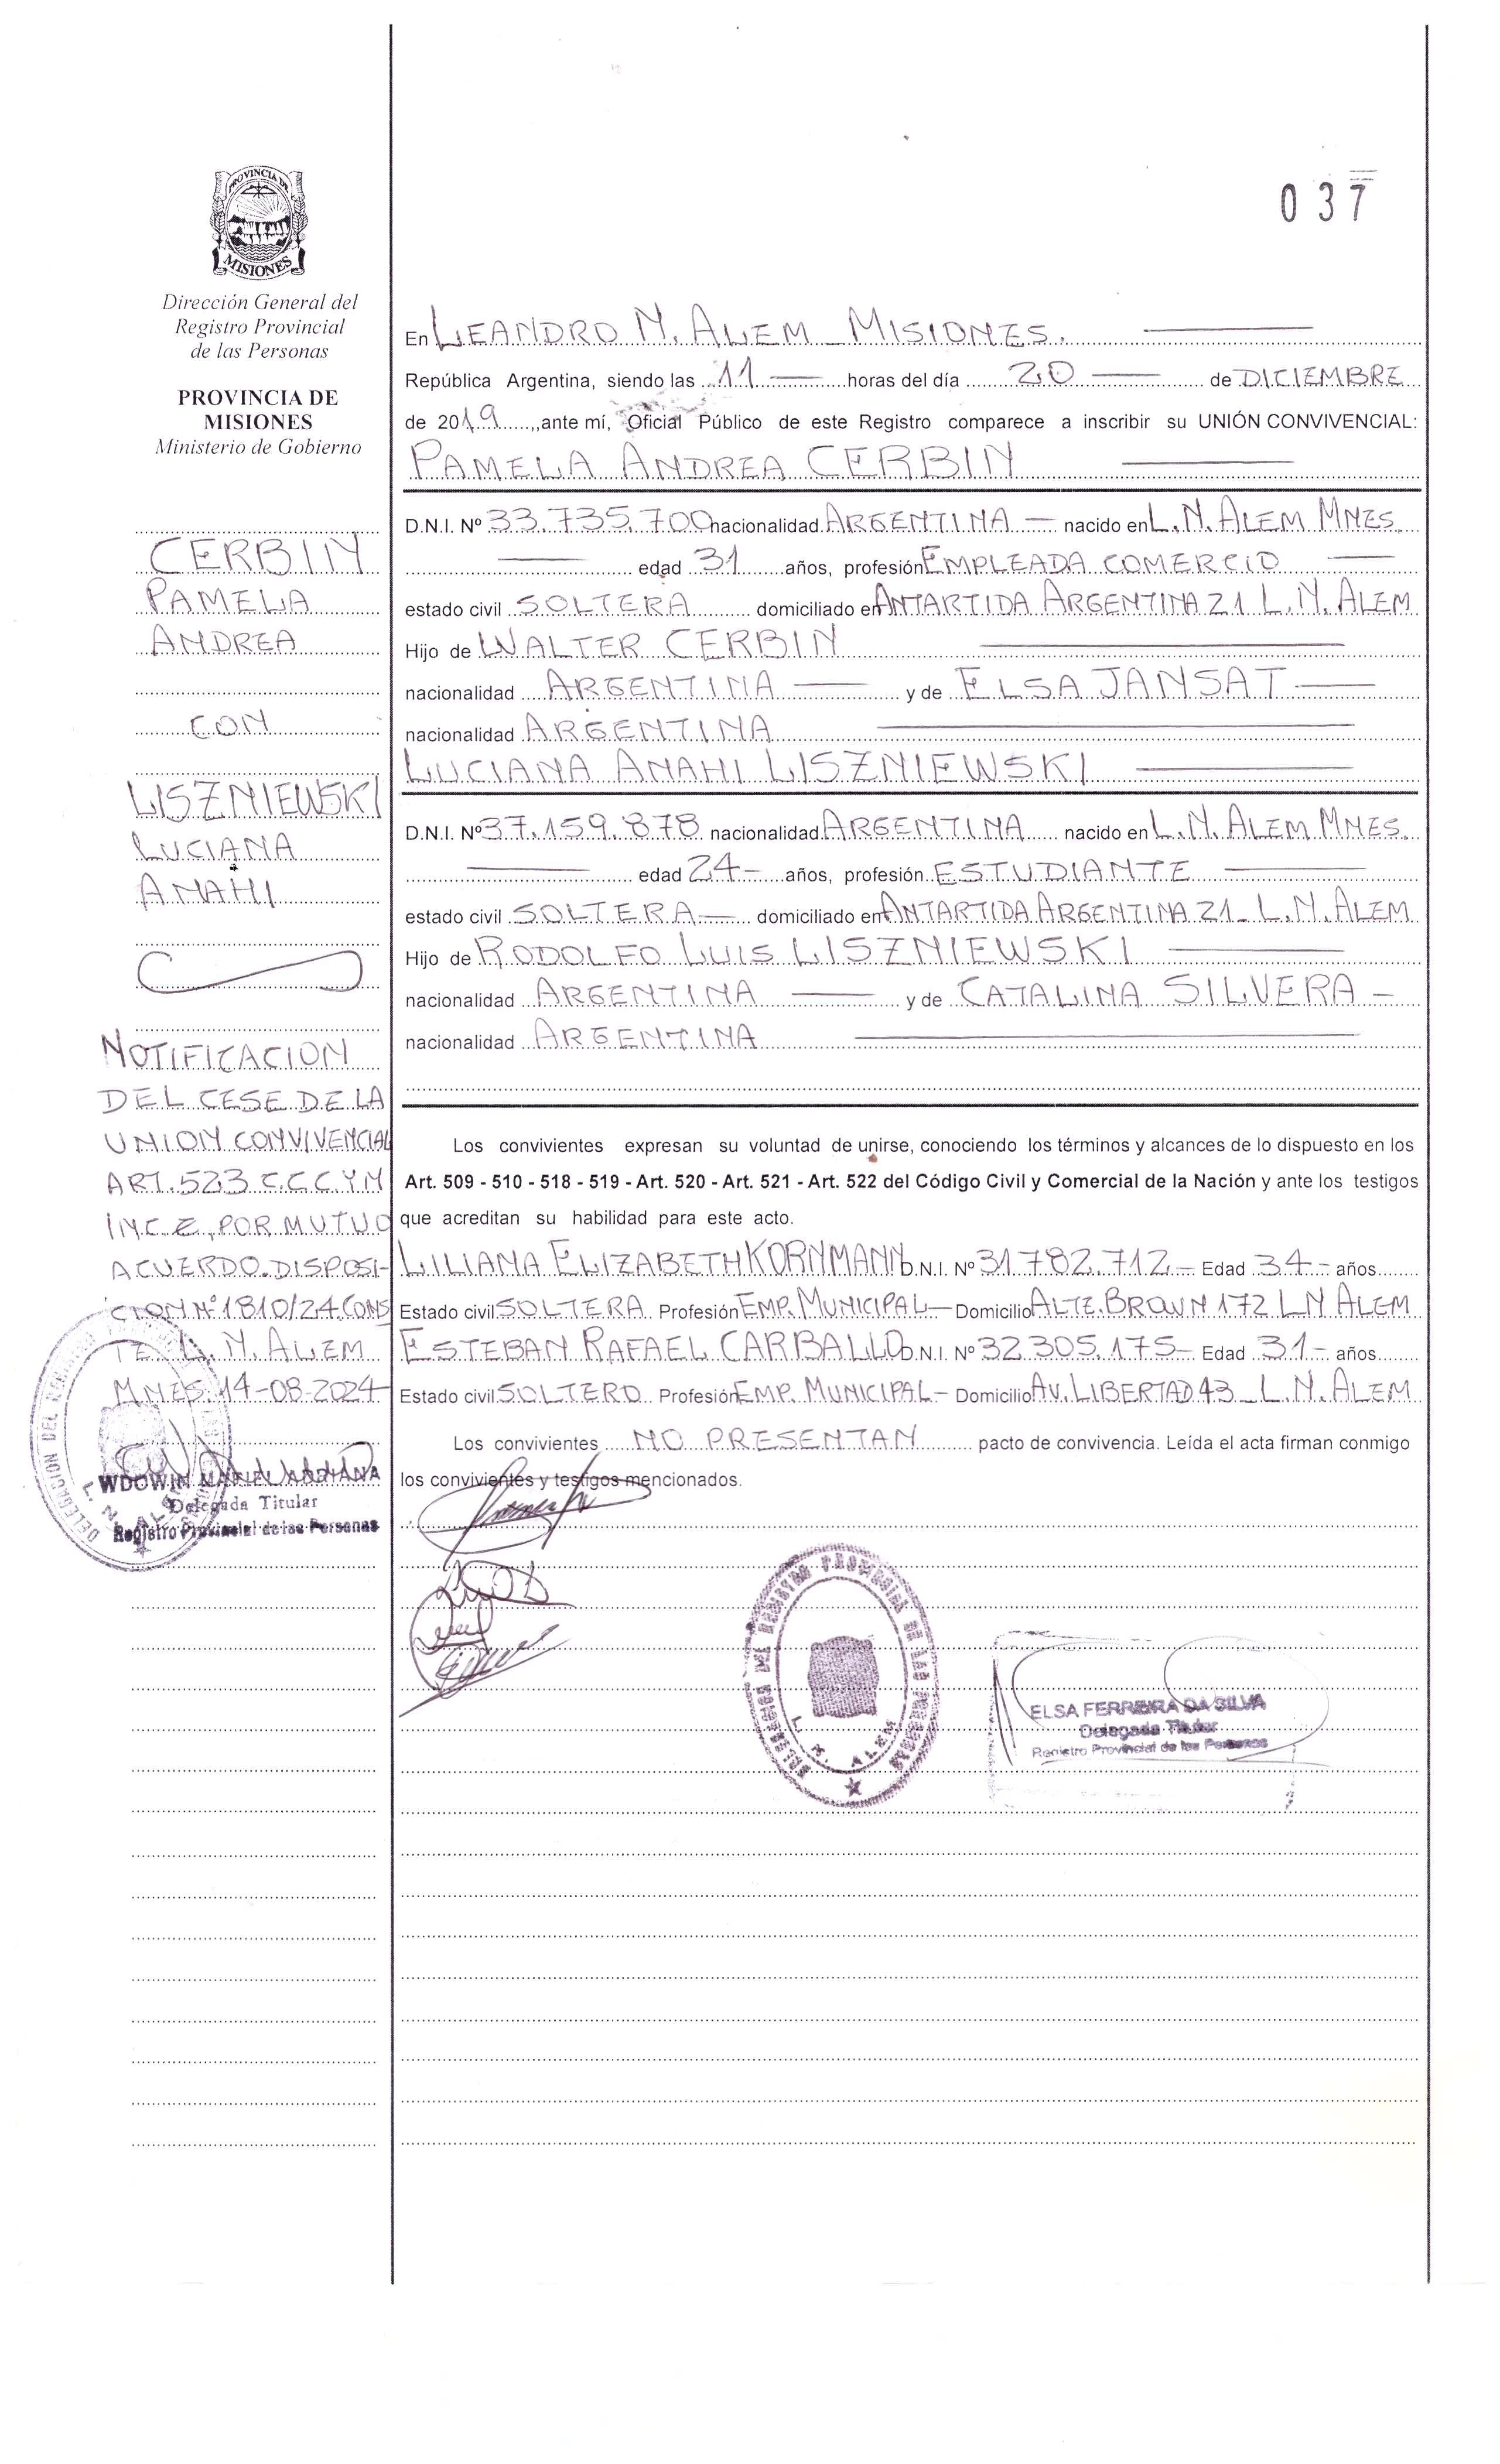 037
PROVINCIA DE
MISIONES
Dirección General del
Registro Provincial
de las Personas
PROVINCIA DE
MISIONES
Ministerio de Gobierno
CERBIN
PAMELA
ANDREA
CON
LISZNIEWSKI
LUCIANA
ANAHI
NOTIFICACION
DEL CESE DE LA
UNION CONVIVENCIAL
ART. 523 C.C.C.Y.N
INC E, POR MUTUO
ACUERDO. DISPOSI-
CION Nº 1810/24. CONS
TE. L. N. ALEM
MNES. 14-08-2024
WDOWIN MARIEL ADRIANA
Delegada Titular
Registro Provincial de las Personas
DELEGACION DEL REGISTRO
L. N. ALEM
En LEANDRO N. ALEM MISIONES.
República Argentina, siendo las 11 horas del día 20 de DICIEMBRE
de 2019, ante mí, Oficial Público de este Registro comparece a inscribir su UNIÓN CONVIVENCIAL:
PAMELA ANDREA CERBIN
D.N.I. Nº 33.735.700 nacionalidad ARGENTINA nacido en L.N. ALEM MNES
edad 31 años, profesión EMPLEADA COMERCIO
estado civil SOLTERA domiciliado en ANTARTIDA ARGENTINA 21 L.N. ALEM
Hijo de WALTER CERBIN
nacionalidad ARGENTINA y de ELSA JANSAT
nacionalidad ARGENTINA
LUCIANA ANAHI LISZNIEWSKI
D.N.I. Nº 37.159.878 nacionalidad ARGENTINA nacido en L.N. ALEM MNES.
edad 24 años, profesión ESTUDIANTE
estado civil SOLTERA domiciliado en ANTARTIDA ARGENTINA 21 L.N. ALEM
Hijo de RODOLFO LUIS LISZNIEWSKI
nacionalidad ARGENTINA y de CATALINA SILVERA
nacionalidad ARGENTINA
Los convivientes expresan su voluntad de unirse, conociendo los términos y alcances de lo dispuesto en los
Art. 509 - 510 - 518 - 519 - Art. 520 - Art. 521 - Art. 522 del Código Civil y Comercial de la Nación y ante los testigos
que acreditan su habilidad para este acto.
LILIANA ELIZABETH KORNMANN D.N.I. Nº 31.782.712 Edad 34 años
Estado civil SOLTERA Profesión EMP. MUNICIPAL Domicilio ALTE. BROWN 172 LN ALEM
ESTEBAN RAFAEL CARBALLO D.N.I. Nº 32.305.175 Edad 31 años
Estado civil SOLTERO Profesión EMP. MUNICIPAL Domicilio AV. LIBERTAD 43 L.N. ALEM
Los convivientes NO PRESENTAN pacto de convivencia. Leída el acta firman conmigo
los convivientes y testigos mencionados.
DELEGACION DEL REGISTRO PROVINCIAL DE LAS PERSONAS
L. N. ALEM
ELSA FERREIRA DA SILVA
Delegada Titular
Registro Provincial de las Personas